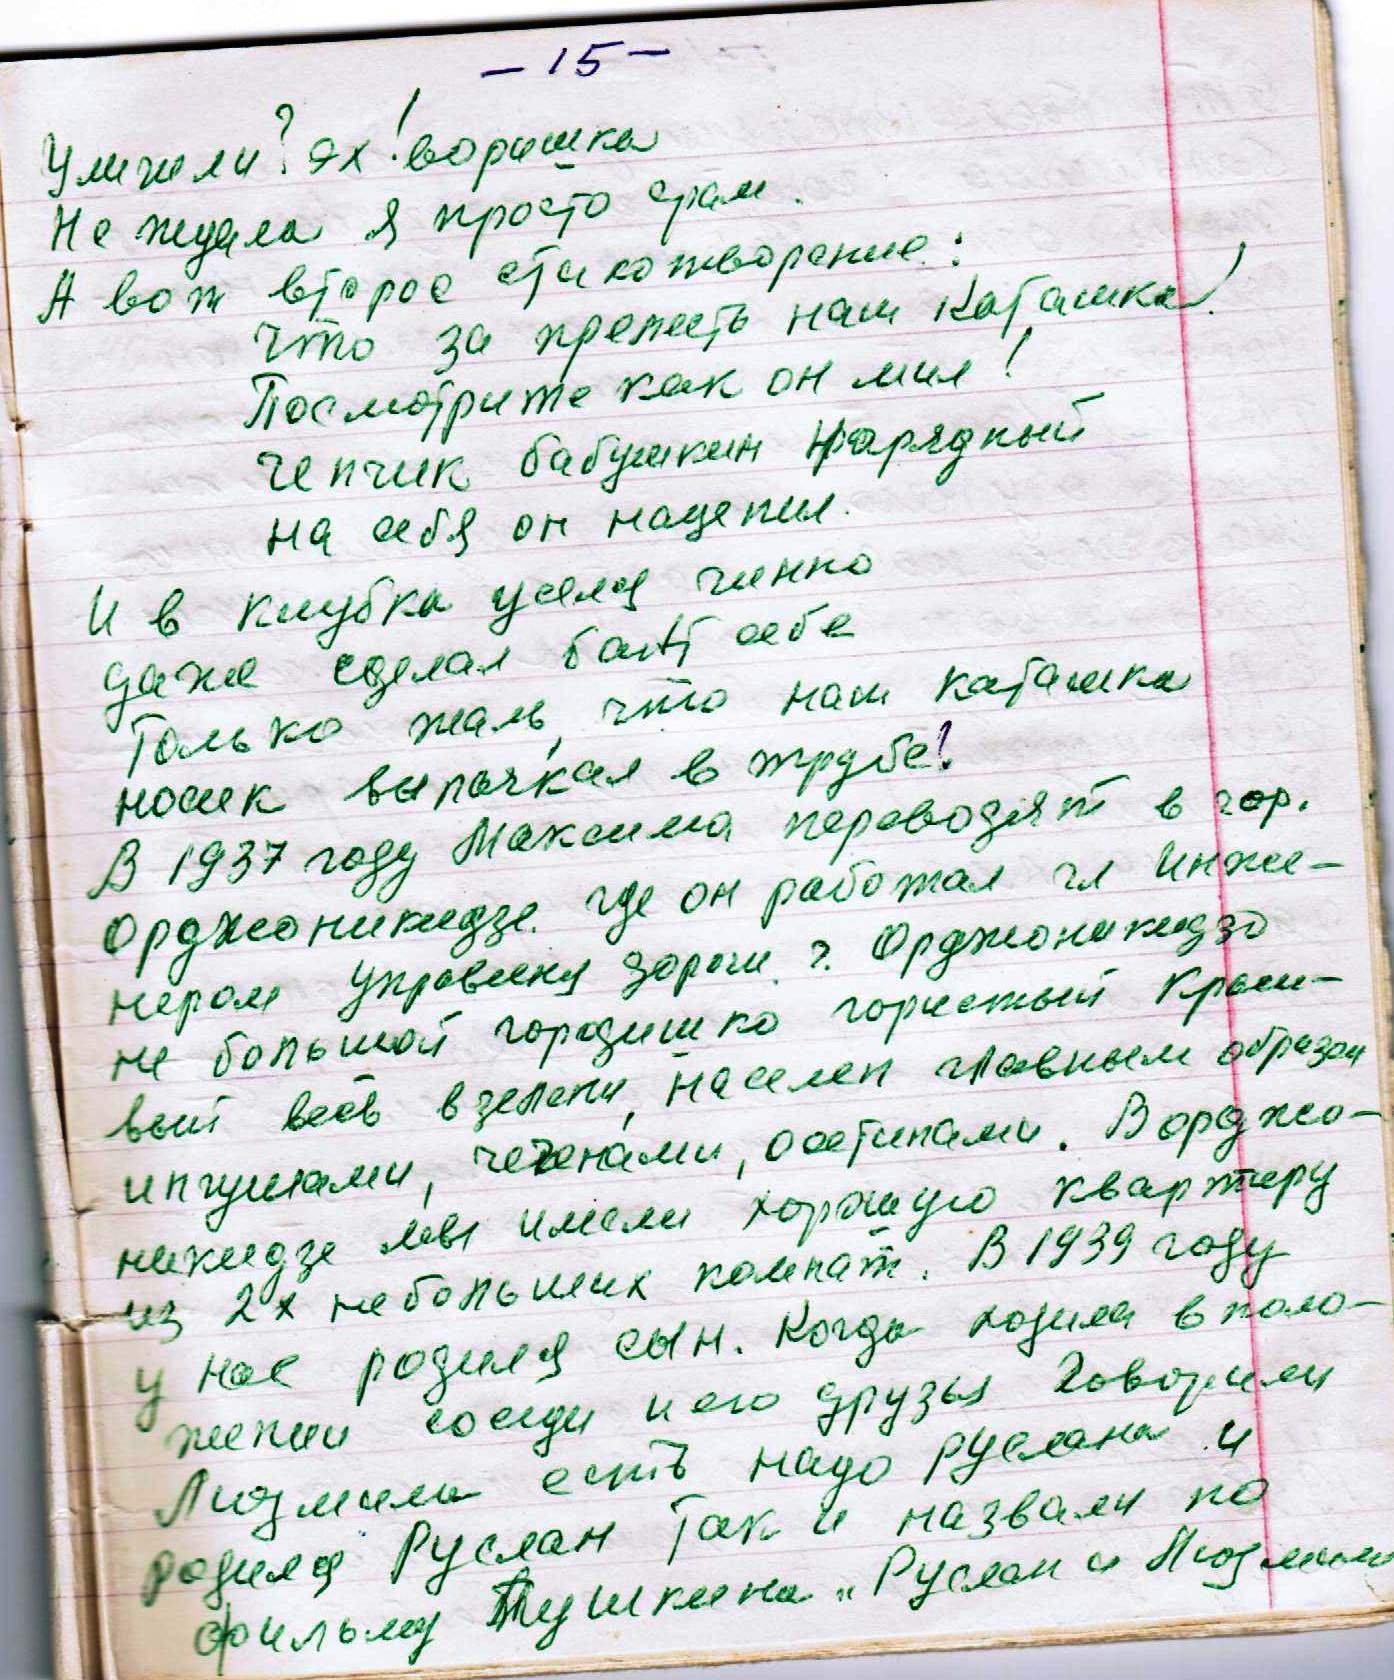 - 15 -
Уличили? эх! воришка
Не ждала я просто срам.
А вот второе стихотворение:
Что за прелесть наш Каташка!
Посмотрите как он мил!
Чепчик бабушкин нарядный
на себя он нацепил.
И в клубка уселся чинно
даже сделал бант себе
Только жаль, что наш каташка
носик выпачкал в трубе!
В 1937 году Максима переводят в гор.
Орджоникидзе. где он работал гл Инже-
нером Управленя дороги. г. Орджоникидзе
не большой городишко гористый краси-
вый весь в зелени, населен главным образом
ингушами, чеченами, осетинами. В орджо-
никидзе мы имели хорошую квартиру
из 2х небольших комнат. В 1939 году
у нас родился сын. Когда ходила в поло-
жении соседи и его друзья Говорили
Людмила есть надо руслана и
родился Руслан Так и назвали по
фильму Пушкина „Руслан и Людмила